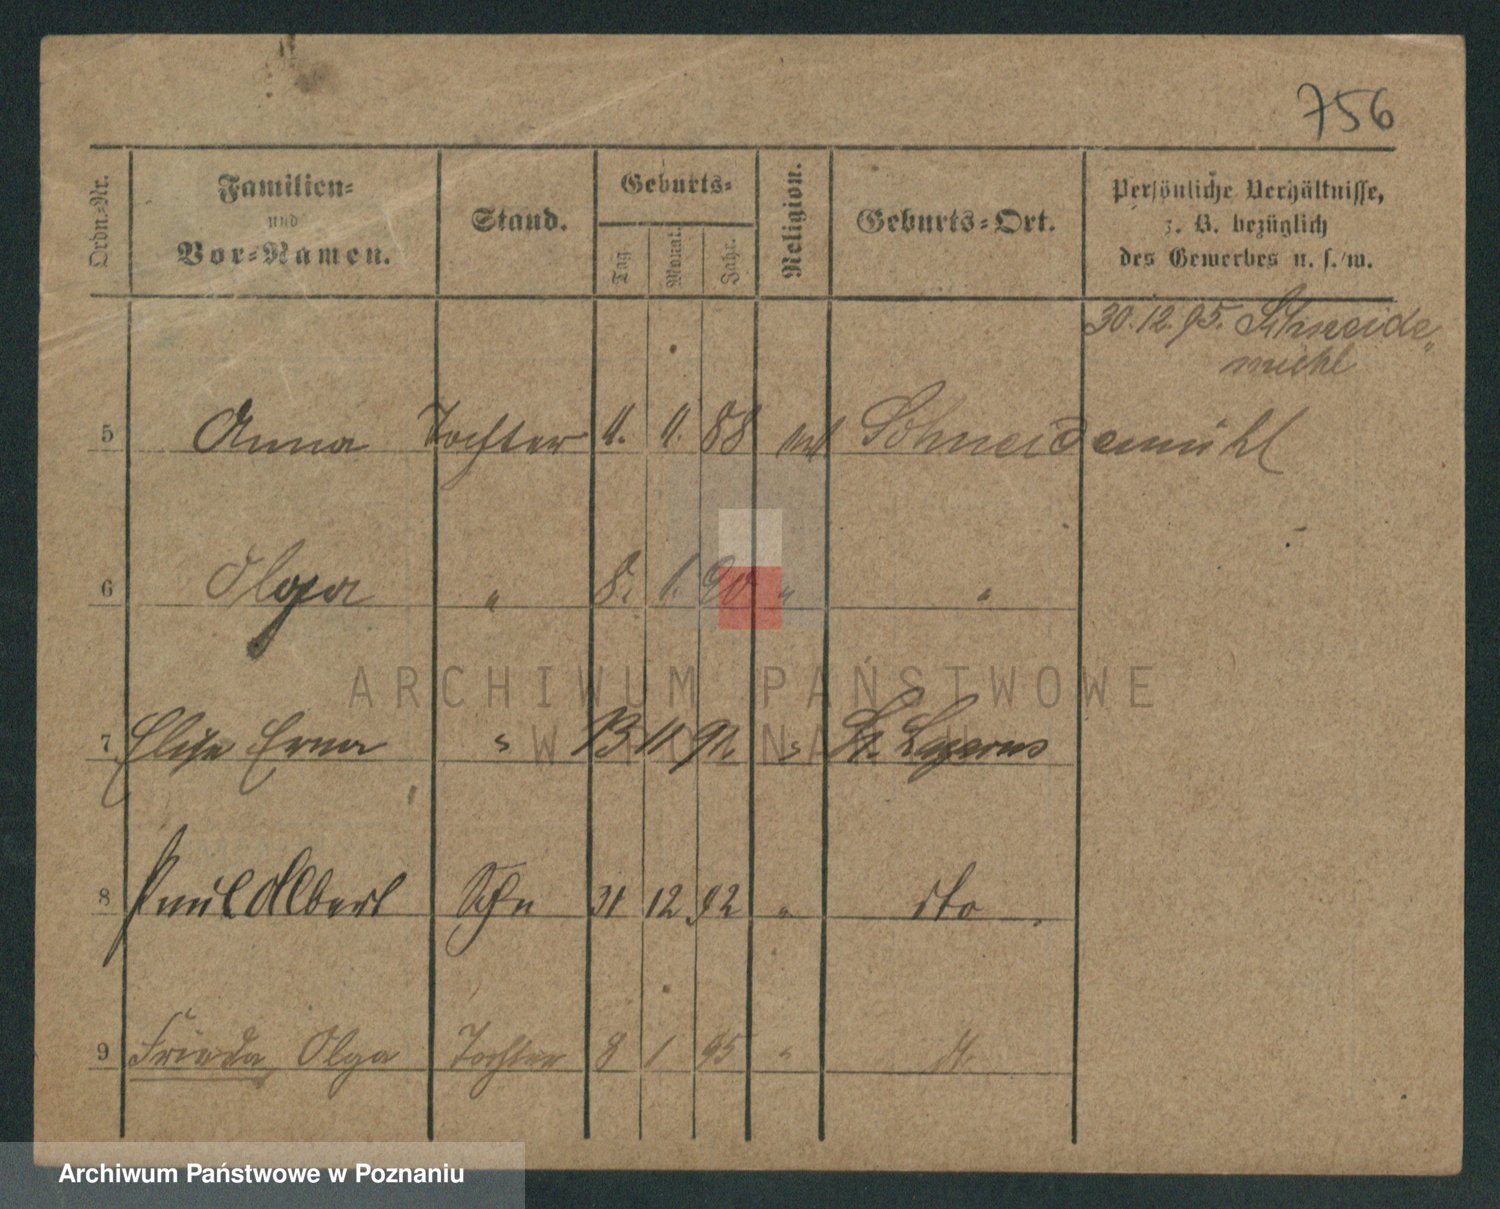 756
Ordn.=Nr.
Familien=
und
Vor=Namen.
Stand.
Geburts=
Tag.
Monat.
Jahr.
Religion.
Geburts=Ort.
Persönliche Verhältnisse,
z. B. bezüglich
des Gewerbes u. s. w.
30.12.95. Schneide„
mühl
5 Anna Tochter 11. 11. 88 Schneidemühl
6 Olga " 8. 1. 90 " "
7 Elise Erna " 13 11. 91. " St. Lazarus
8 Paul Albert Sohn 31 12 92 " dto.
9 Frieda, Olga Tochter 8 1 95 "
ARCHIWUM PAŃSTWOWE
W POZNANIU
Archiwum Państwowe w Poznaniu